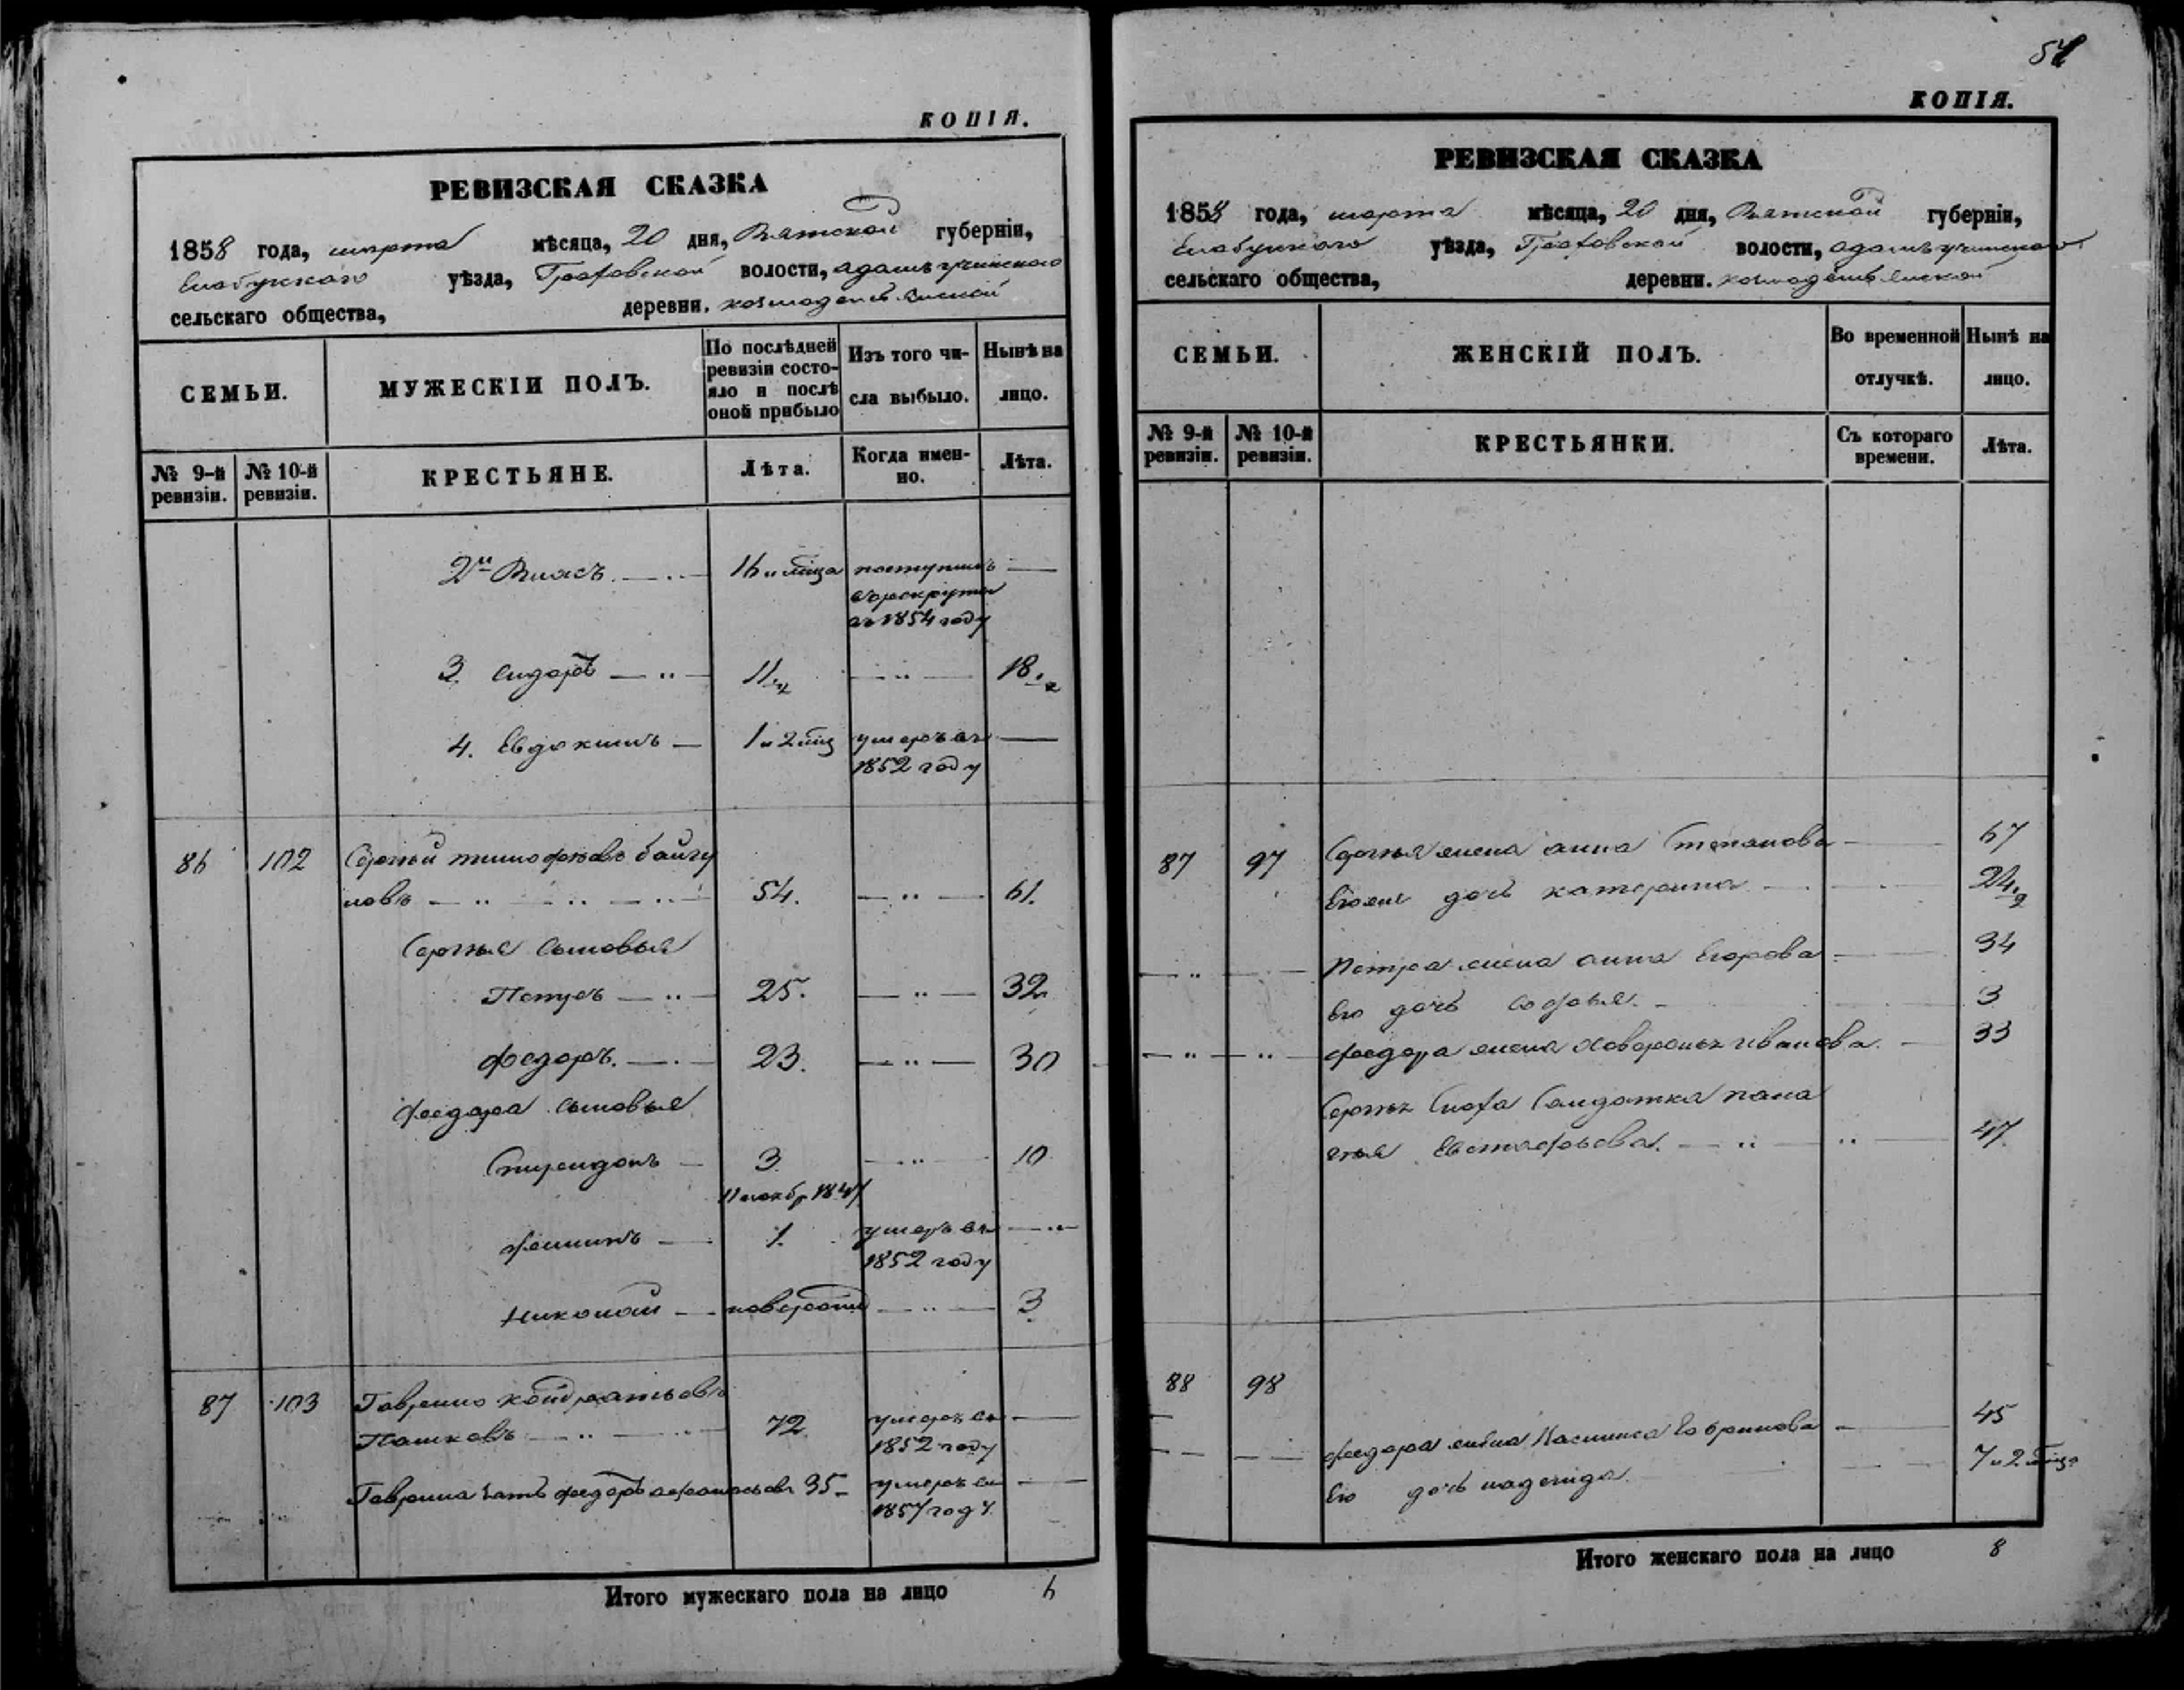 КОПІЯ.
РЕВИЗСКАЯ СКАЗКА
1858 года, марта мѣсяца, 20 дня, Вятской губерніи,
Елабужскаго уѣзда, Граховской волости,
сельскаго общества, деревни. козмодемьянской
СЕМЬИ.
МУЖЕСКІЙ ПОЛЪ.
По послѣдней ревизіи состояло и послѣ оной прибыло
Изъ того числа выбыло.
Нынѣ на лицо.
№ 9-й ревизіи.
№ 10-й ревизіи.
КРЕСТЬЯНЕ.
Лѣта.
Когда именно.
Лѣта.
2й Власъ. 16 поступилъ
в рекруты
въ 1854 году
3. Сидоръ 11 1/2 18 1/2
4. Евдокимъ 1 и 2 умеръ въ
1852 году
86 102 Сергей тимофеевъ байгу
новъ 54. 61.
Сергея сыновья
Петръ 25. 32
федоръ. 23. 30
федора сыновья
Спиридонъ 3. 10
1847
1. умеръ въ
1852 году
Николай 3
87 103 Гаврило кондратьевъ
Пашковъ 72 умеръ въ
1852 году
Гаврила зать федоръ афанасьевъ 35 умеръ въ
1857 году
Итого мужескаго пола на лицо 6
54
КОПІЯ.
РЕВИЗСКАЯ СКАЗКА
1858 года, марта мѣсяца, 20 дня, Вятской губерніи,
Елабужскаго уѣзда, Граховской волости,
сельскаго общества, деревни. козмодемьянской
СЕМЬИ.
ЖЕНСКІЙ ПОЛЪ.
Во временной отлучкѣ.
Нынѣ на лицо.
№ 9-й ревизіи.
№ 10-й ревизіи.
КРЕСТЬЯНКИ.
Съ котораго времени.
Лѣта.
87 97 Сергея жена анна Степанова 67
Его же дочь катерина 24 1/2
Петра жена анна Егорова 34
Его дочь софья. 3
федора жена Иванова. 33
Сноха Солдатка пала
гея Евстафьева. 47
88 98
федора жена Гаврилова 45
Его дочь надежда. 7 и 2
Итого женскаго пола на лицо 8